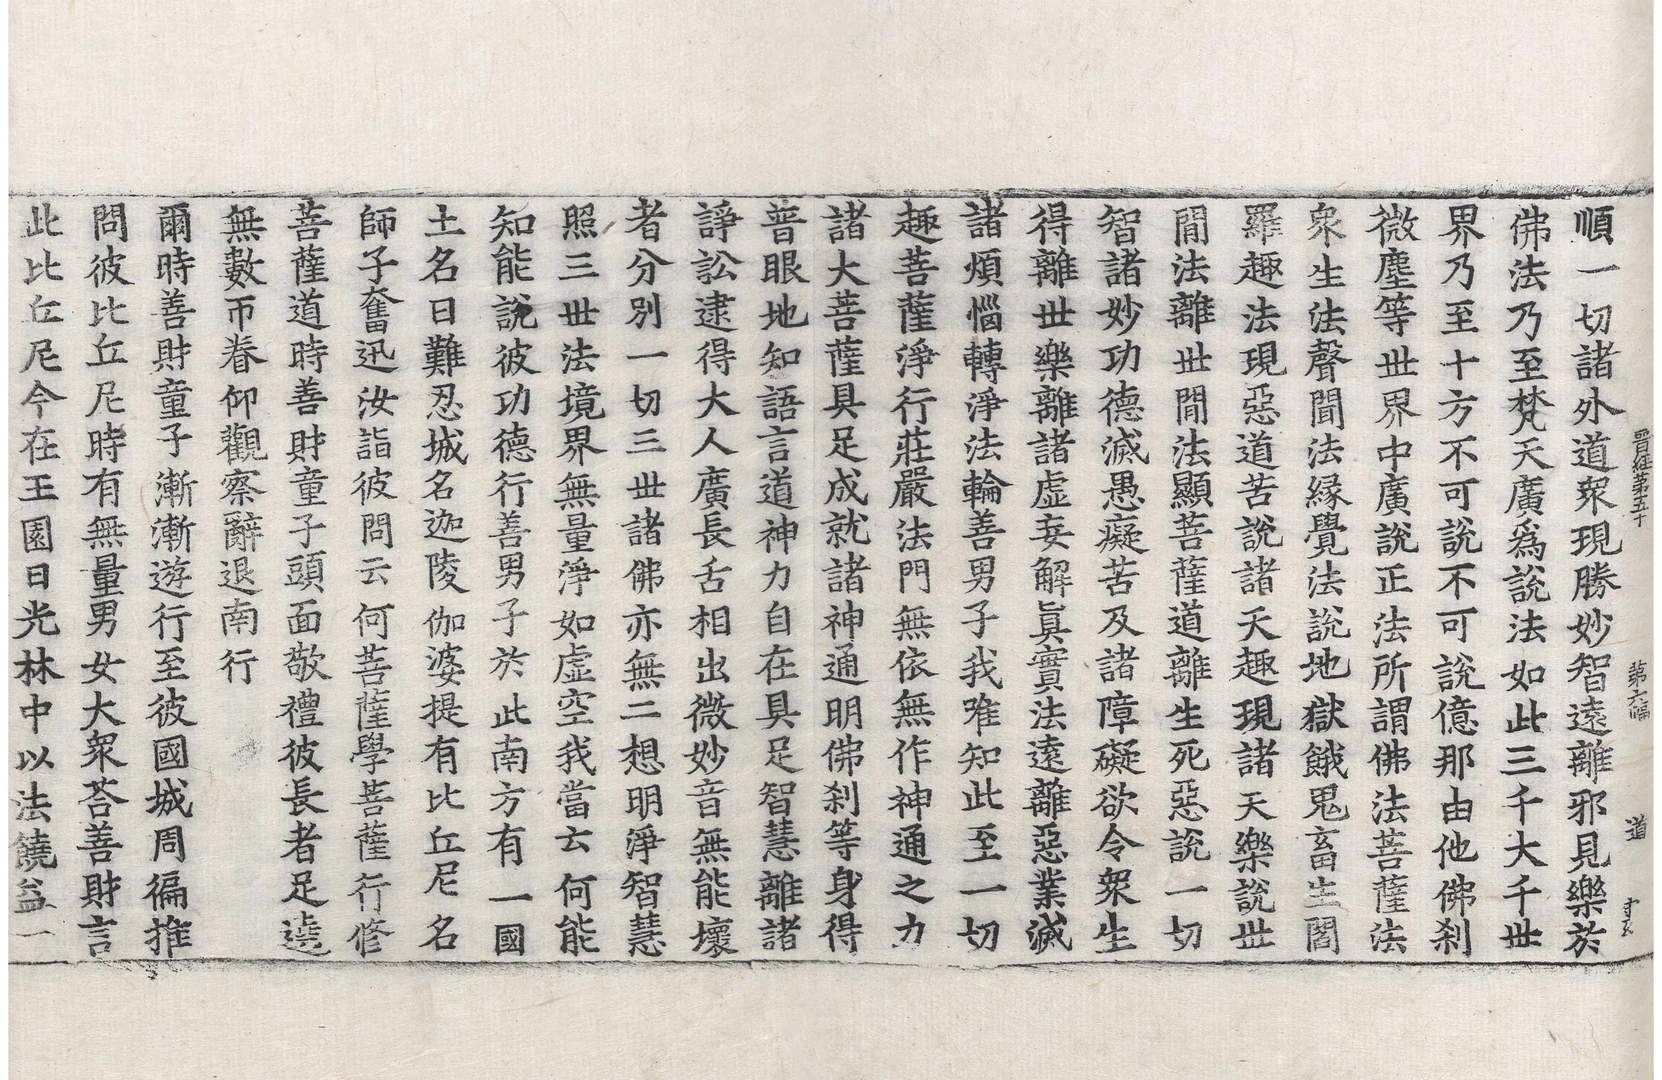 晋經第五十　第六幅　道　
順一切諸外道衆現勝妙智遠離邪見樂於
佛法乃至梵天廣爲說法如此三千大千世
界乃至十方不可說不可說億那由他佛刹
微塵等世界中廣說正法所謂佛法菩薩法
衆生法聲聞法縁覺法說地獄餓鬼畜生閻
羅趣法現惡道苦說諸天趣現諸天樂說世
間法離世間法顯菩薩道離生死惡說一切
智諸妙功德滅愚癡苦及諸障礙欲令衆生
得離世樂離諸虛妄解眞實法遠離惡業滅
諸煩惱轉淨法輪善男子我唯知此至一切
趣菩薩淨行莊嚴法門無依無作神通之力
諸大菩薩具足成就諸神通明佛刹等身得
普眼地知語言道神力自在具足智慧離諸
諍訟逮得大人廣長舌相出微妙音無能壞
者分別一切三世諸佛亦無二想明淨智慧
照三世法境界無量淨如虛空我當云何能
知能說彼功德行善男子於此南方有一國
土名曰難忍城名迦陵伽婆提有比丘尼名
師子奮迅汝詣彼問云何菩薩學菩薩行修
菩薩道時善財童子頭面敬禮彼長者足遶
無數帀眷仰觀察辭退南行
爾時善財童子漸漸遊行至彼國城周徧推
問彼比丘尼時有無量男女大衆荅善財言
此比丘尼今在王園日光林中以法饒益一